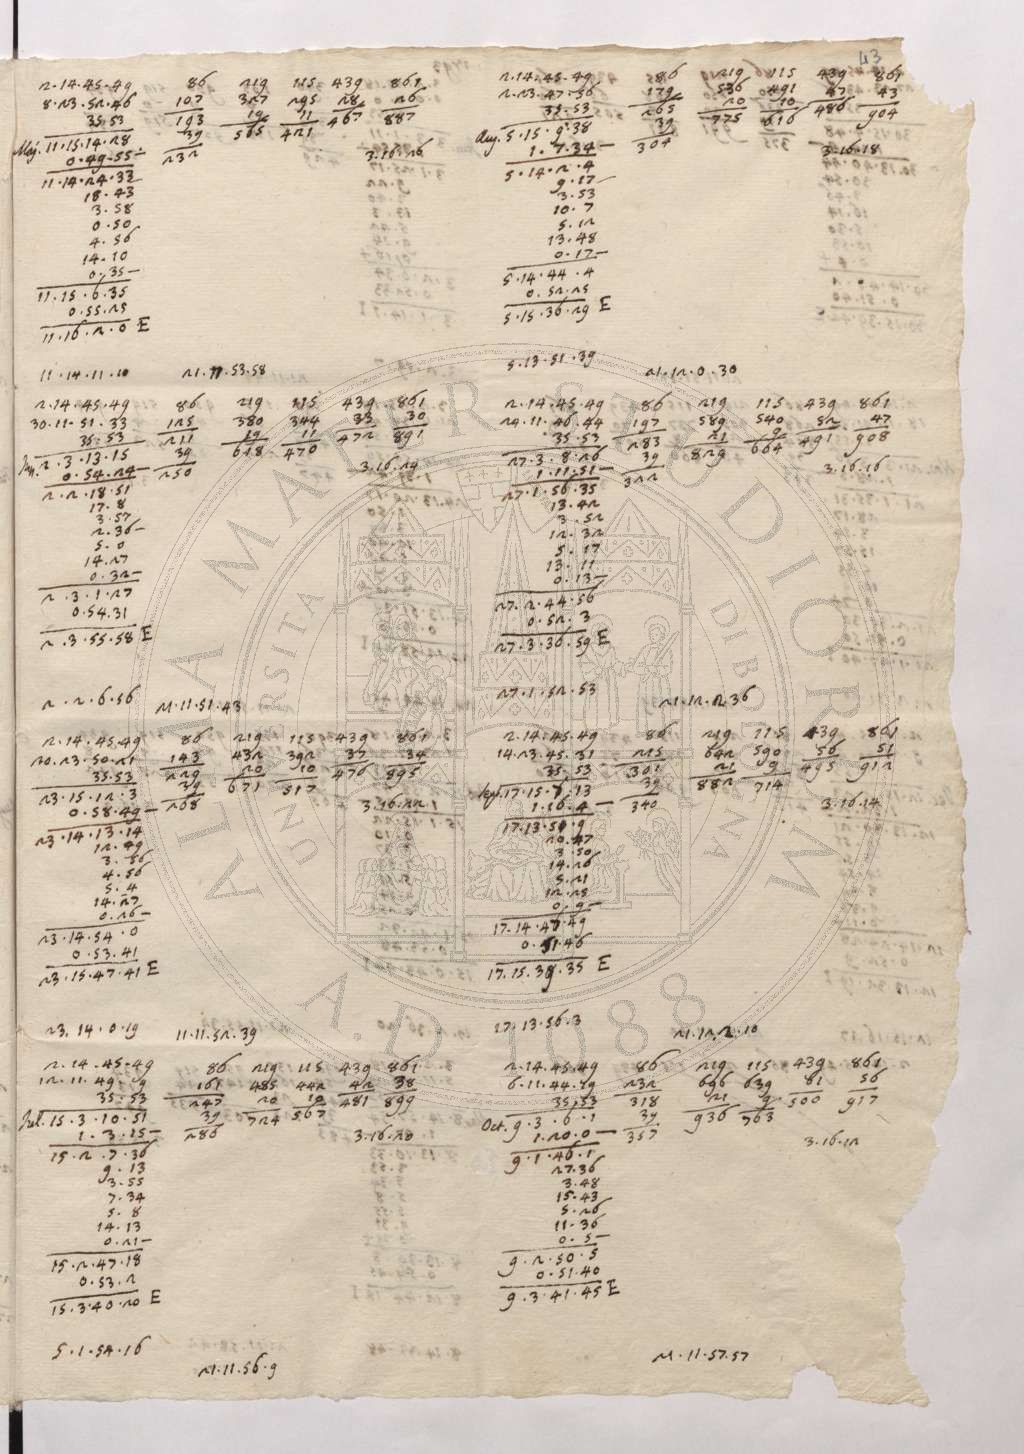 43
2.14.45.49 86 219 115 439 861
8.23.52.46 107 327 295 28 26
35.53 193 19 11 467 887
Maj. 11.15.14.28 39 565 421
0.49.55— 232 3.16.26
11.14.24.33
18.43
3.58
0.50
4.56
14.10
0.35—
11.15.6.35
0.55.25
11.16.2.0 E
11.14.11.10 21.11.53.58
2.14.45.49 86 219 115 439 861
30.11.51.33 125 380 344 33 30
35.53 211 19 11 472 891
Jun. 2.3.13.15 39 618 470
0.54.24— 250 3.16.24
2.2.18.51
17.8
3.57
2.36—
5.0
14.27
0.32—
2.3.1.27
0.54.31
2.3.55.58 E
2.2.6.56 21.11.51.43
2.14.45.49 86 219 115 439 861
20.23.50.21 143 432 392 37 34
35.53 229 20 10 476 895
23.15.12.3 39 671 517
0.58.49— 268 3.16.22
23.14.13.14
12.49
3.56
4.56
5.4
14.27
0.26—
23.14.54.0
0.53.41
23.15.47.41 E
23.14.0.19 11.11.52.39
2.14.45.49 86 219 115 439 861
12.11.49.9 161 485 442 42 38
35.53 247 20 10 481 899
Jul. 15.3.10.51 39 724 567
1.3.15— 286 3.16.20
15.2.7.36
9.13
3.55
7.34
5.8
14.13
0.21—
15.2.47.18
0.53.2
15.3.40.20 E
5.1.54.16
21.11.56.9
2.14.45.49 86 219 115 439 861
2.23.47.56 179 536 491 47 43
35.53 265 20 10 486 904
Aug. 5.15.9.38 39 775 616
1.7.34— 304 3.16.18
5.14.2.4
9.17
3.53
10.7
5.12
13.48
0.17—
5.14.44.4
0.52.25
5.15.36.29 E
5.13.51.39 21.12.0.30
2.14.45.49 86 219 115 439 861
24.11.46.44 197 589 540 52 47
35.53 283 21 9 491 908
27.3.8.26 39 829 664
1.11.51— 322 3.16.16
27.1.56.35
13.42
3.52
12.32
5.17
13.11
0.13—
27.2.44.56
0.52.3
27.3.36.59 E
27.1.52.53 21.12.2.36
2.14.45.49 86 219 115 439 861
14.23.45.31 215 642 590 56 51
35.53 301 21 9 495 912
Sept. 17.15.7.13 39 882 714
1.16.4— 340 3.16.14
17.13.51.9
20.47
3.50
14.26
5.21
12.25
0.9—
17.14.47.49
0.51.46
17.15.39.35 E
17.13.56.3 21.12.2.10
2.14.45.49 86 219 115 439 861
6.11.44.19 232 696 639 61 56
35.53 318 21 9 500 917
Oct. 9.3.6.1 39 936 763
1.20.0— 357 3.16.12
9.1.46.1
27.36
3.48
15.43
5.26
11.36
0.5—
9.2.50.5
0.51.40
9.3.41.45 E
21.11.57.57
ALMA MATER STUDIORUM
UNIVERSITÀ DI BOLOGNA
A.D. 1088